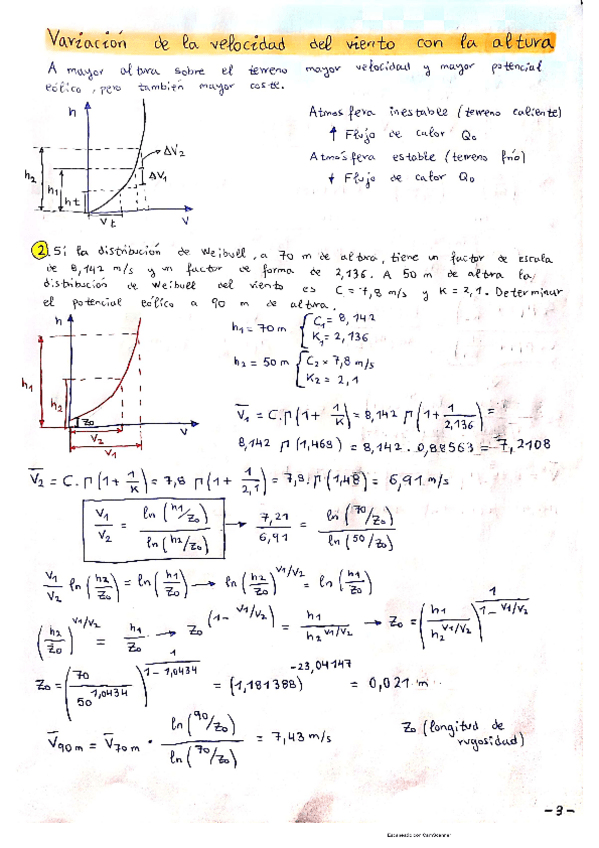 Variación de la velocidad del viento con la altura
A mayor altura sobre el terreno mayor velocidad y mayor potencial
eólico, pero también mayor coste.
h
Atmosfera inestable (terreno caliente)
↑ Flujo de calor Q₀
Atmósfera estable (terreno frío)
↓ Flujo de calor Q₀
ΔV₂
ΔV₁
h₂
h₁
ht
Vt
V
2. Si la distribución de Weibull, a 70 m de altura, tiene un factor de escala
de 8,142 m/s y un factor de forma de 2,136. A 50 m de altura la
distribución de Weibull del viento es C = 7,8 m/s y K = 2,1. Determinar
el potencial eólico a 90 m de altura.
h
h₁
h₂
Z₀
V₂
V₁
V
h₁ = 70 m { C₁ = 8,142
K₁ = 2,136
h₂ = 50 m { C₂ = 7,8 m/s
K₂ = 2,1
V̄₁ = C.Γ(1 + 1/K) = 8,142 Γ(1 + 1/2,136) =
8,142 Γ(1,468) = 8,142 . 0,88563 = 7,2108
V̄₂ = C.Γ(1 + 1/K) = 7,8 Γ(1 + 1/2,1) = 7,8.Γ(1,48) = 6,91 m/s
V₁/V₂ = ln(h₁/Z₀)/ln(h₂/Z₀) → 7,21/6,91 = ln(70/Z₀)/ln(50/Z₀)
V₁/V₂ ln(h₂/Z₀) = ln(h₁/Z₀) → ln(h₂/Z₀)^V₁/V₂ = ln(h₁/Z₀)
(h₂/Z₀)^V₁/V₂ = h₁/Z₀ → Z₀^(1 - V₁/V₂) = h₁/h₂^V₁/V₂ → Z₀ = (h₁/h₂^V₁/V₂)^1/(1 - V₁/V₂)
Z₀ = (70/50^1,0434)^1/(1 - 1,0434) = (1,181388)^-23,04147 = 0,021 m
V̄90 m = V̄70 m · ln(90/Z₀)/ln(70/Z₀) = 7,43 m/s
Z₀ (longitud de
rugosidad)
-3-
Escaneado con CamScanner